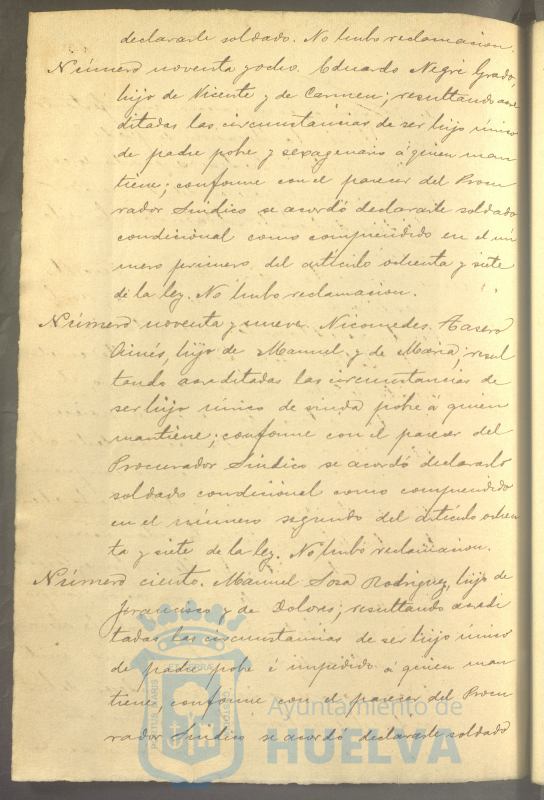 declararle soldado. No hubo reclamacion.
Número noventa y ocho. Eduardo Negri Grado,
hijo de Vicente y de Carmen; resultando acre
ditadas las circunstancias de ser hijo único
de padre pobre y sexagenario á quien man
tiene; conforme con el parecer del Procu
rador Sindico se acordó declararle soldado
condicional como comprendido en el nú
mero primero del artículo ochenta y siete
de la ley. No hubo reclamacion.
Número noventa y nueve. Nicomedes
hijo de Manuel y de Maria; resul
tando acreditadas las circunstancias de
ser hijo único de viuda pobre á quien
mantiene; conforme con el parecer del
Procurador Sindico se acordó declararlo
soldado condicional como comprendido
en el número segundo del artículo ochen
ta y siete de la ley. No hubo reclamacion.
Número ciento. Manuel Sosa Rodriguez, hijo de
Francisco y de Dolores; resultando acredi
tadas las circunstancias de ser hijo único
de padre pobre é impedido á quien man
tiene, conforme con el parecer del Procu
rador Sindico se acordó declararle soldado
Ayuntamiento de
HUELVA